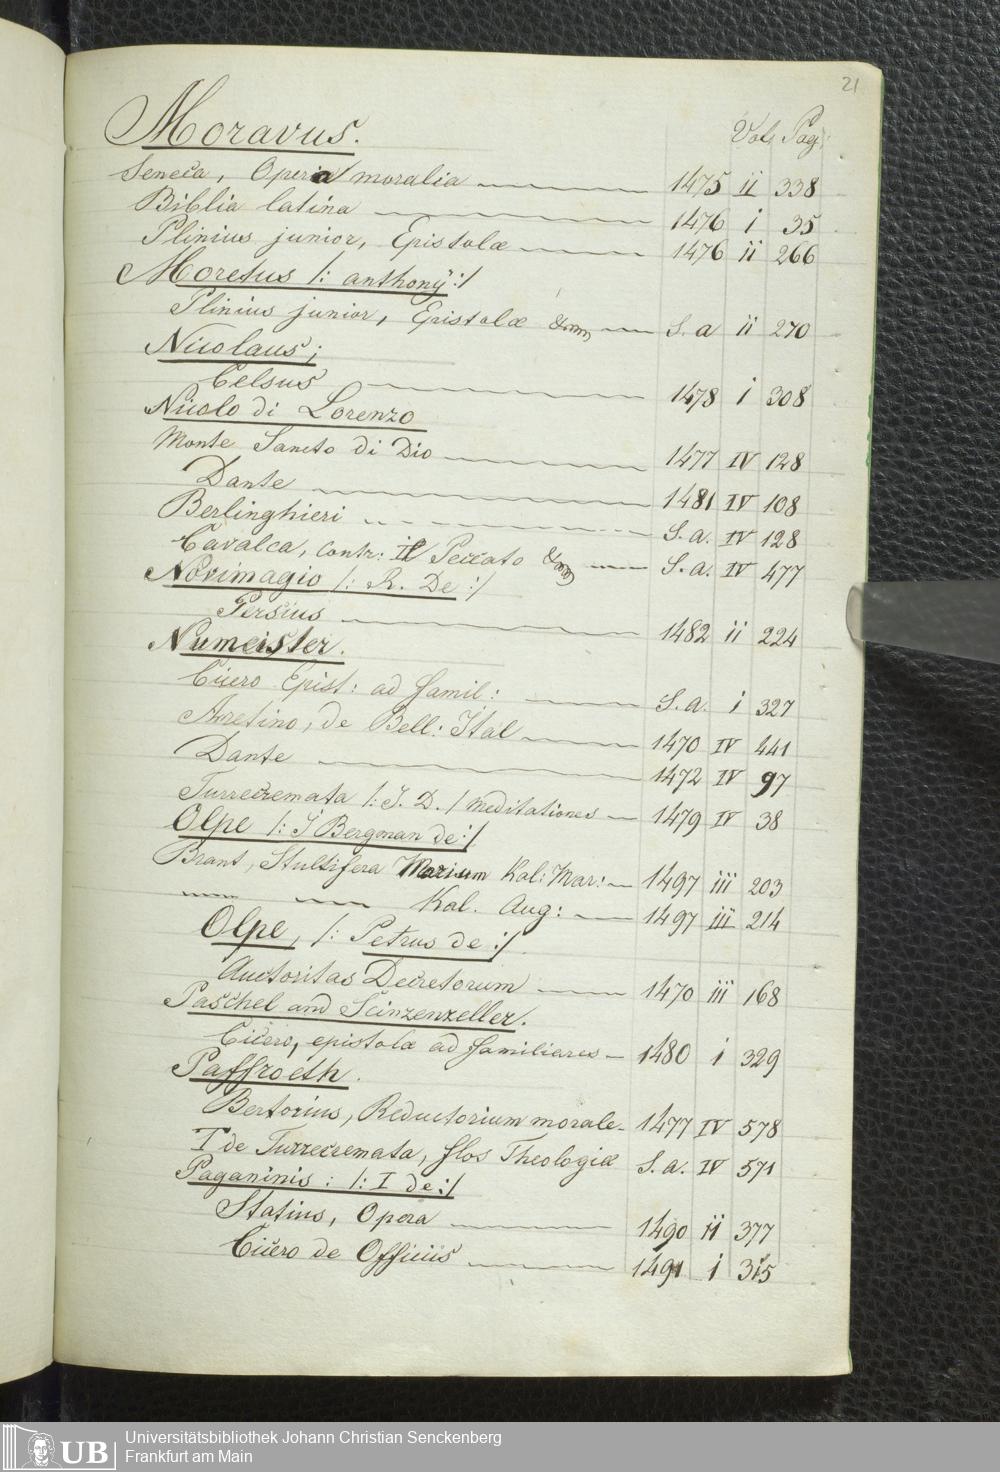 21
Moravus. Vol. Pag:
Seneca, Opera moralia 1475 ii 338
Biblia latina 1476 i 35
Plinius junior, Epistolæ 1476 ii 266
Moretus /: anthony :/
Plinius junior, Epistolæ S. a ii 270
Nicolaus;
Celsus 1478 i 308
Nicolo di Lorenzo
Monte Sancto di Dio 1477 IV 128
Dante 1481 IV 108
Berlinghieri S. a. IV 128
Cavalca, contr: il Peccato S. a. IV 477
Novimagio /: R. De :/
Persius 1482 ii 224
Numeister.
Cicero Epist: ad famil: S. a. i 327
Aretino, de Bell: Ital 1470 IV 441
Dante 1472 IV 97
Turrecremata /: J. D. / meditationes 1479 IV 38
Olpe /: J Bergman de :/
Brant, Stultifera Kal: Mar: 1497 iii 203
Kal. Aug: 1497 iii 214
Olpe, /: Petrus de :/
Auctoritas Decretorum 1470 iii 168
Paschel and Scinzenzeller.
Cicero, epistolæ ad familiares 1480 i 329
Paffroeth.
Bertorius, Reductorium morale 1477 IV 578
T de Turrecremata, flos Theologiæ S. a. IV 571
Paganinis: /: I de :/
Statius, Opera 1490 ii 377
Cicero de Officiis 1491 i 315
UB Universitätsbibliothek Johann Christian Senckenberg
Frankfurt am Main